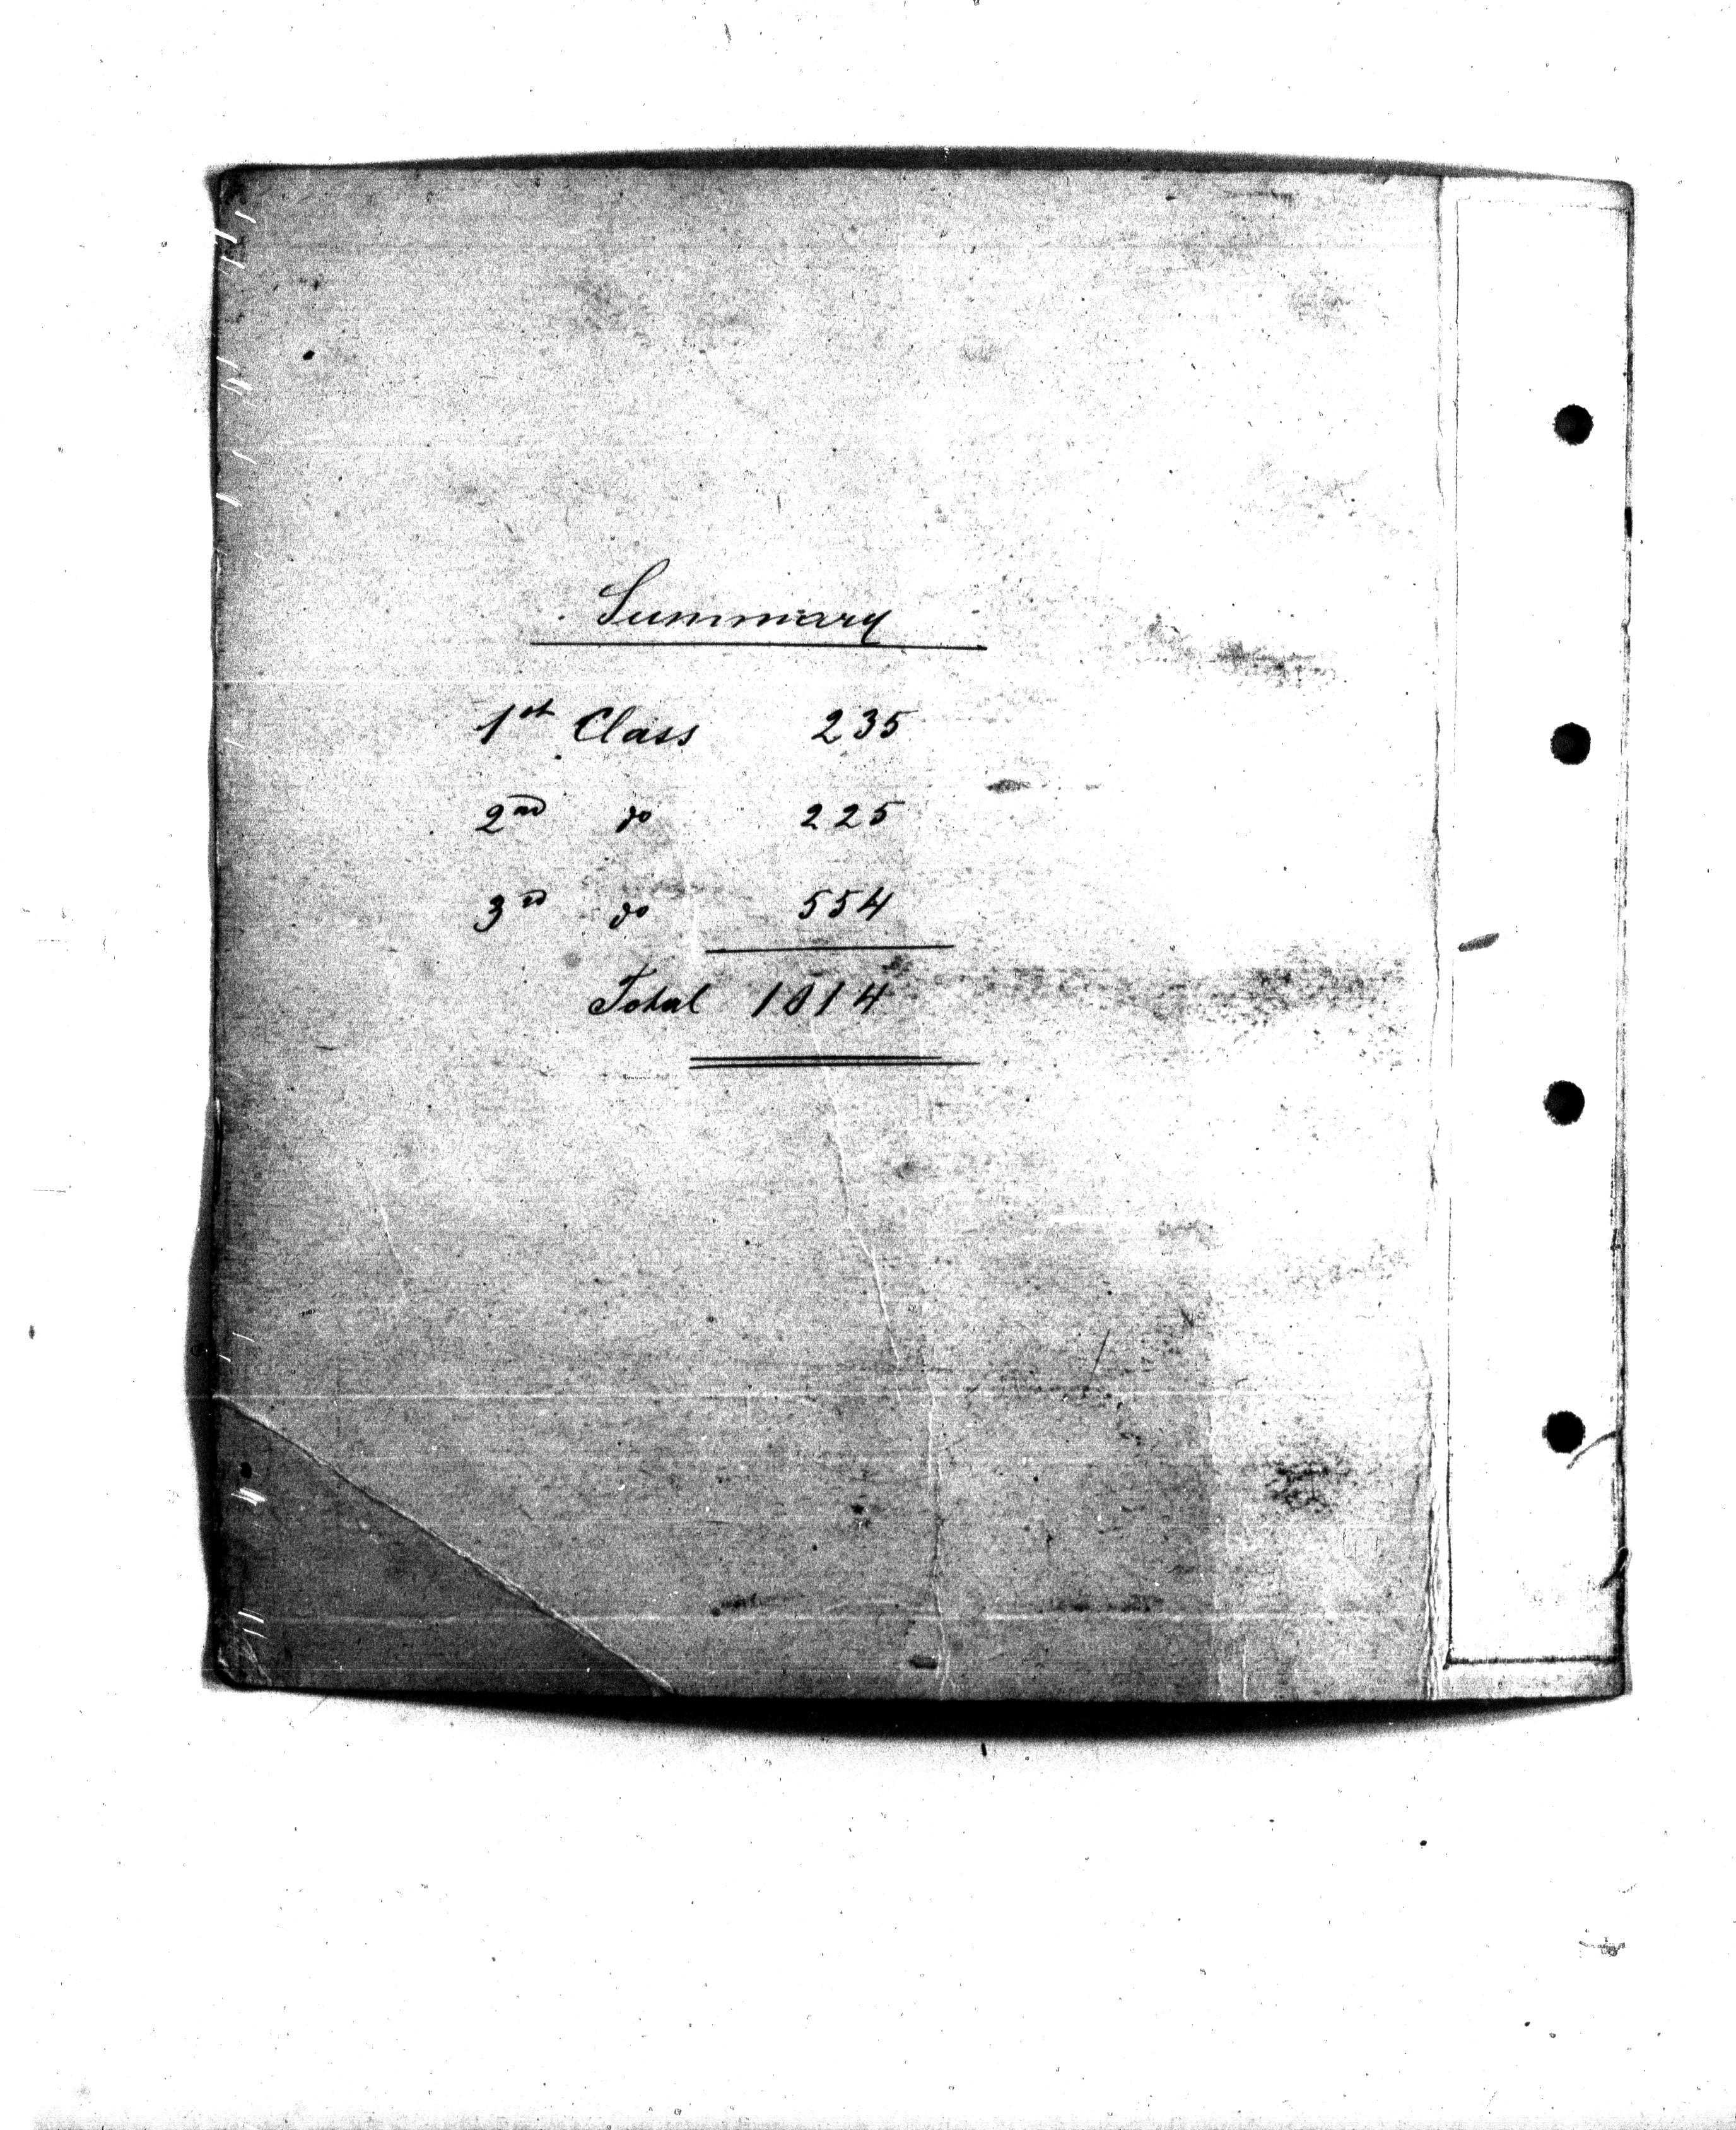 Summary
1st Class 235
2nd do 225
3rd do 554
Total 1014